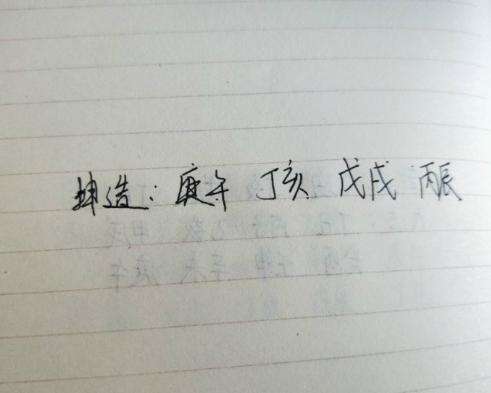 坤造：庚午 丁亥 戊戌 丙辰